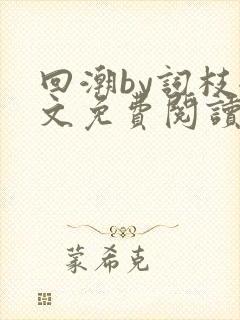 回潮by詞枝
文免費閱讀
蒙希克